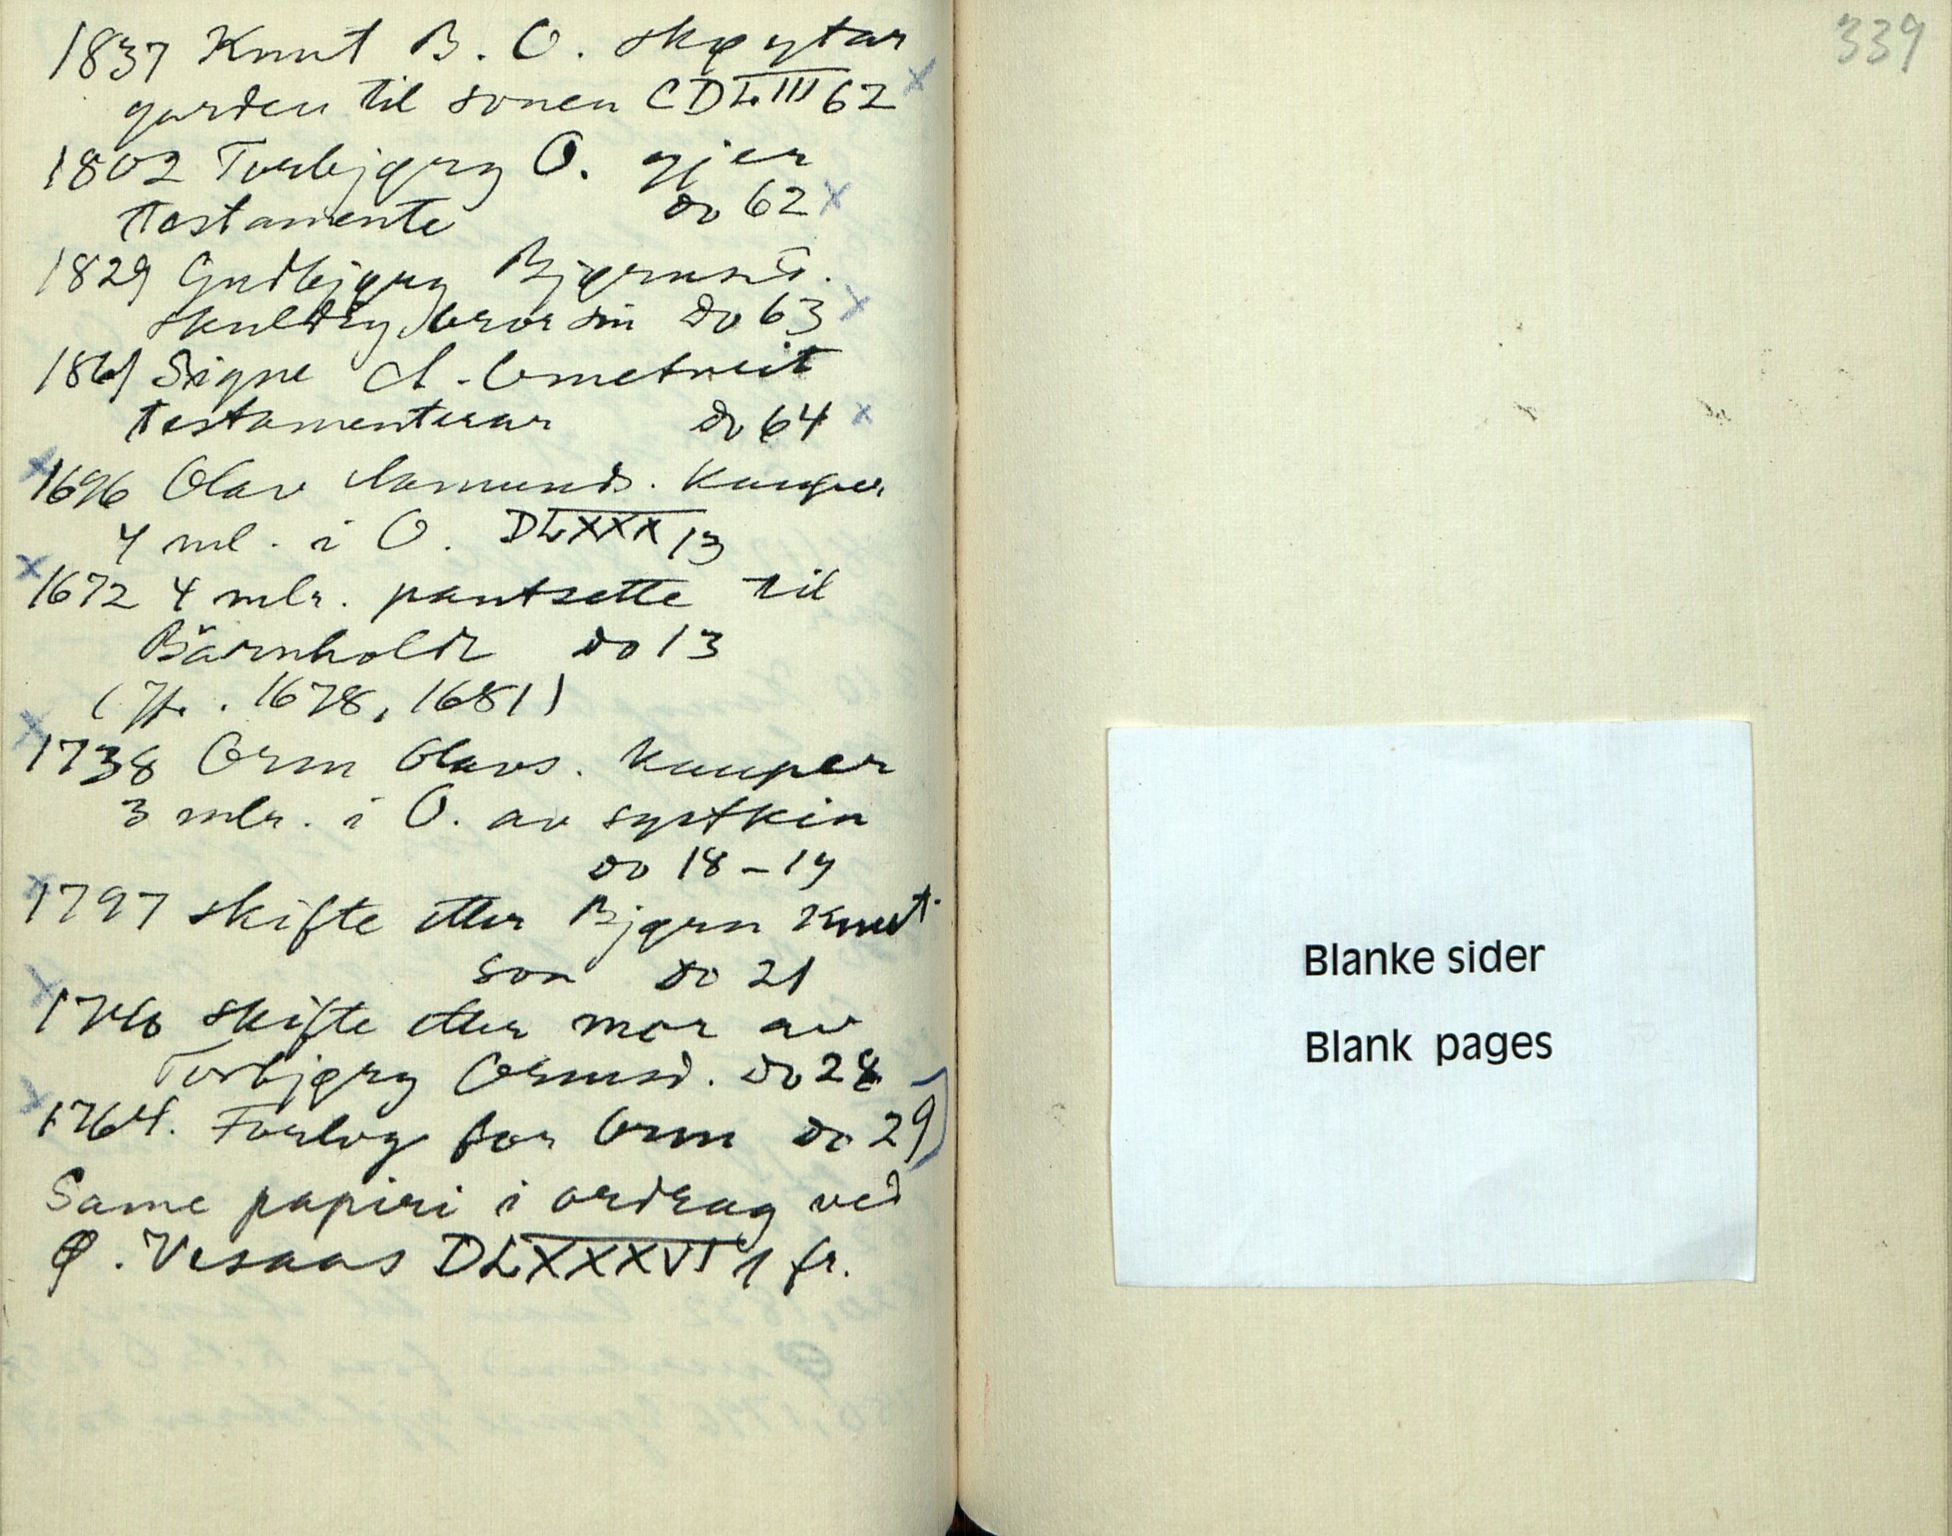 1837 Knut B. O. skøytar
garden til sonen CDLIII 62 x
1802 Torbjørg O. gjer
testamente do 62 x
1829 Gudbjørg Bjørnsd.
skuldig bror sin do 63 x
1861 Signe A. Ormetveit
testamenterar do 64 x
x 1696 Olav Aamunds. kauper
4 ml. i O. DLXXX 13
x 1672 4 mlr. pantsette til
Bärnholdt do 13
( Jfr. 1678, 1681)
x 1738 Orm Olavs. kauper
3 mlr. i O. av systkin
do 18-19
x 1797 skifte etter Bjørn Knut-
son do 21
x skifte etter mor av
Torbjørg Ormsd. do 28
x 1764. Forlog for Orm do 29)
Same papiri i ordrag ved
Ø. Vesaas DLXXXVI 1 fr.
339
Blanke sider
Blank pages